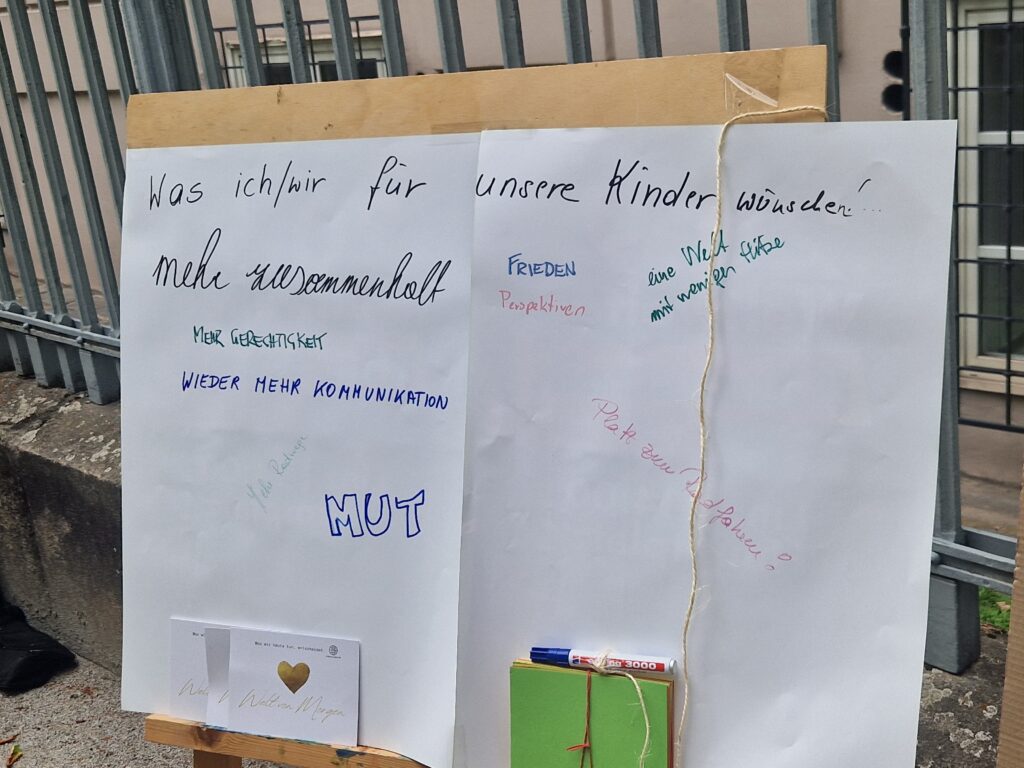 Was ich/wir für unsere Kinder wünschen!...
mehr zusammenhalt
MEHR GERECHTIGKEIT
WIEDER MEHR KOMMUNIKATION
Mehr
MUT
FRIEDEN
Perspektiven
eine Welt
mit weniger Hitze
Platz zum Radfahren!
Was wir heute tun, entscheidet
Welt von Morgen
3000